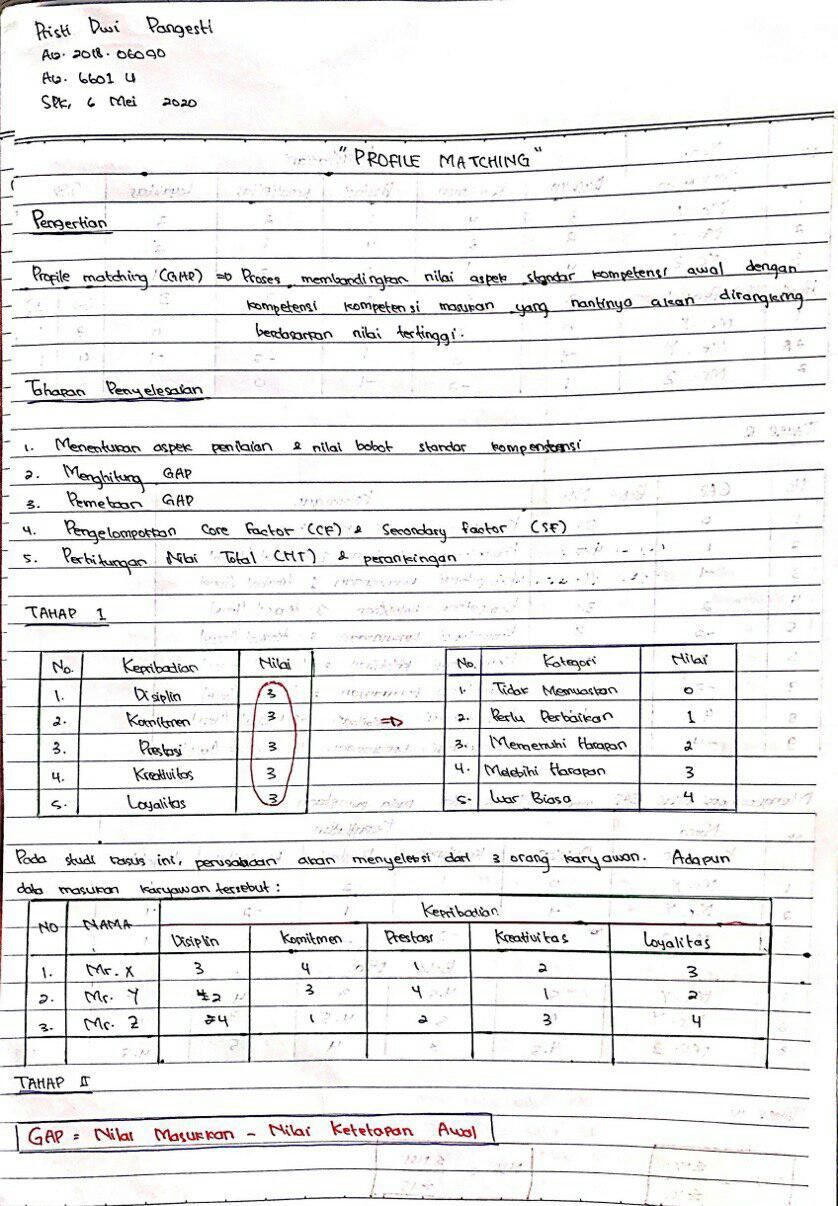 Pristi Dwi Pangesti
A12.2018.06090
A12.6601 U
SPK, 6 Mei 2020
"PROFILE MATCHING"
Pengertian
Profile matching (GAP) => Proses membandingkan nilai aspek standar kompetensi awal dengan
kompetensi kompetensi masukan yang nantinya akan dirangking
berdasarkan nilai tertinggi.
Tahapan Penyelesaian
1. Menentukan aspek penilaian & nilai bobot standar kompentensi
2. Menghitung GAP
3. Pemetaan GAP
4. Pengelompokkan Core Factor (CF) & Secondary factor (SF)
5. Perhitungan Nilai Total (NT) & perankingan
TAHAP I
No. Kepribadian Nilai
1. Disiplin 3
2. Komitmen 3
3. Prestasi 3
4. Kreativitas 3
5. Loyalitas 3
=>
No. Kategori Nilai
1. Tidak Memuaskan 0
2. Perlu Perbaikan 1
3. Memenuhi Harapan 2
4. Melebihi Harapan 3
5. Luar Biasa 4
Pada studi kasus ini, perusahaan akan menyeleksi dari 3 orang karyawan. Adapun
data masukan karyawan tersebut :
NO NAMA Kepribadian
Disiplin Komitmen Prestasi Kreativitas Loyalitas
1. Mr. X 3 4 1 2 3
2. Mr. Y 2 3 4 1 2
3. Mr. Z 4 1 2 3 4
TAHAP II
GAP = Nilai Masukkan - Nilai Ketetapan Awal